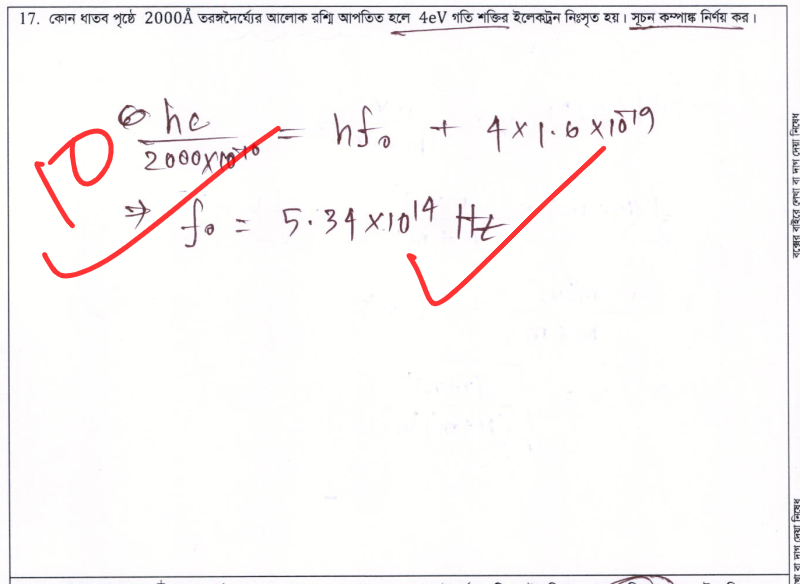 17. কোন ধাতব পৃষ্ঠে 2000Å তরঙ্গদৈর্ঘ্যের আলোক রশ্মি আপতিত হলে 4eV গতি শক্তির ইলেকট্রন নিঃসৃত হয়। সূচন কম্পাঙ্ক নির্ণয় কর।
10
hc / 2000×10⁻¹⁰ = hf₀ + 4×1.6×10⁻¹⁹
⇒ f₀ = 5.34×10¹⁴ Hz
বক্সের বাইরে লেখা বা দাগ দেয়া নিষেধ
বা দাগ দেয়া নিষেধ